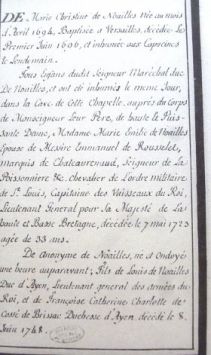 DE Marie Christine de Noailles née au mois
d'Avril 1694, Baptisée a Versailles, décédée Le
Premier Juin 1696, et inhumée aux Capucines
le Lendemain.
Tous Enfans dudit Seigneur Maréchal duc
De Noailles, et ont été inhumés le même Jour,
dans la Cave de Cette Chapelle, auprès du Corps
de Monseigneur Leur Père, de haute et Puis-
sante Dame, Madame Marie Emilie de Noailles
Epouse de Messire Emmanuel de Rousselet,
Marquis de Chateaurenaud, Seigneur de La
Poissonniere &c. Chevalier de L'ordre militaire
de St. Louis, Capitaine des Vaisseaux du Roi,
Lieutenant General pour Sa Majesté de La
haute et Basse Bretagne, décédée le 7 mai 1723
agée de 33 ans.
De Anonyme de Noailles, né et Ondoyé
une heure auparavant; Fils de Louis de Noailles
Duc d'Ayen, Lieutenant general des armées du
Roi, et de Françoise Catherine Charlotte de
Cossé de Brissac Duchesse d'Ayen, décédé le 8.
Juin 1748.